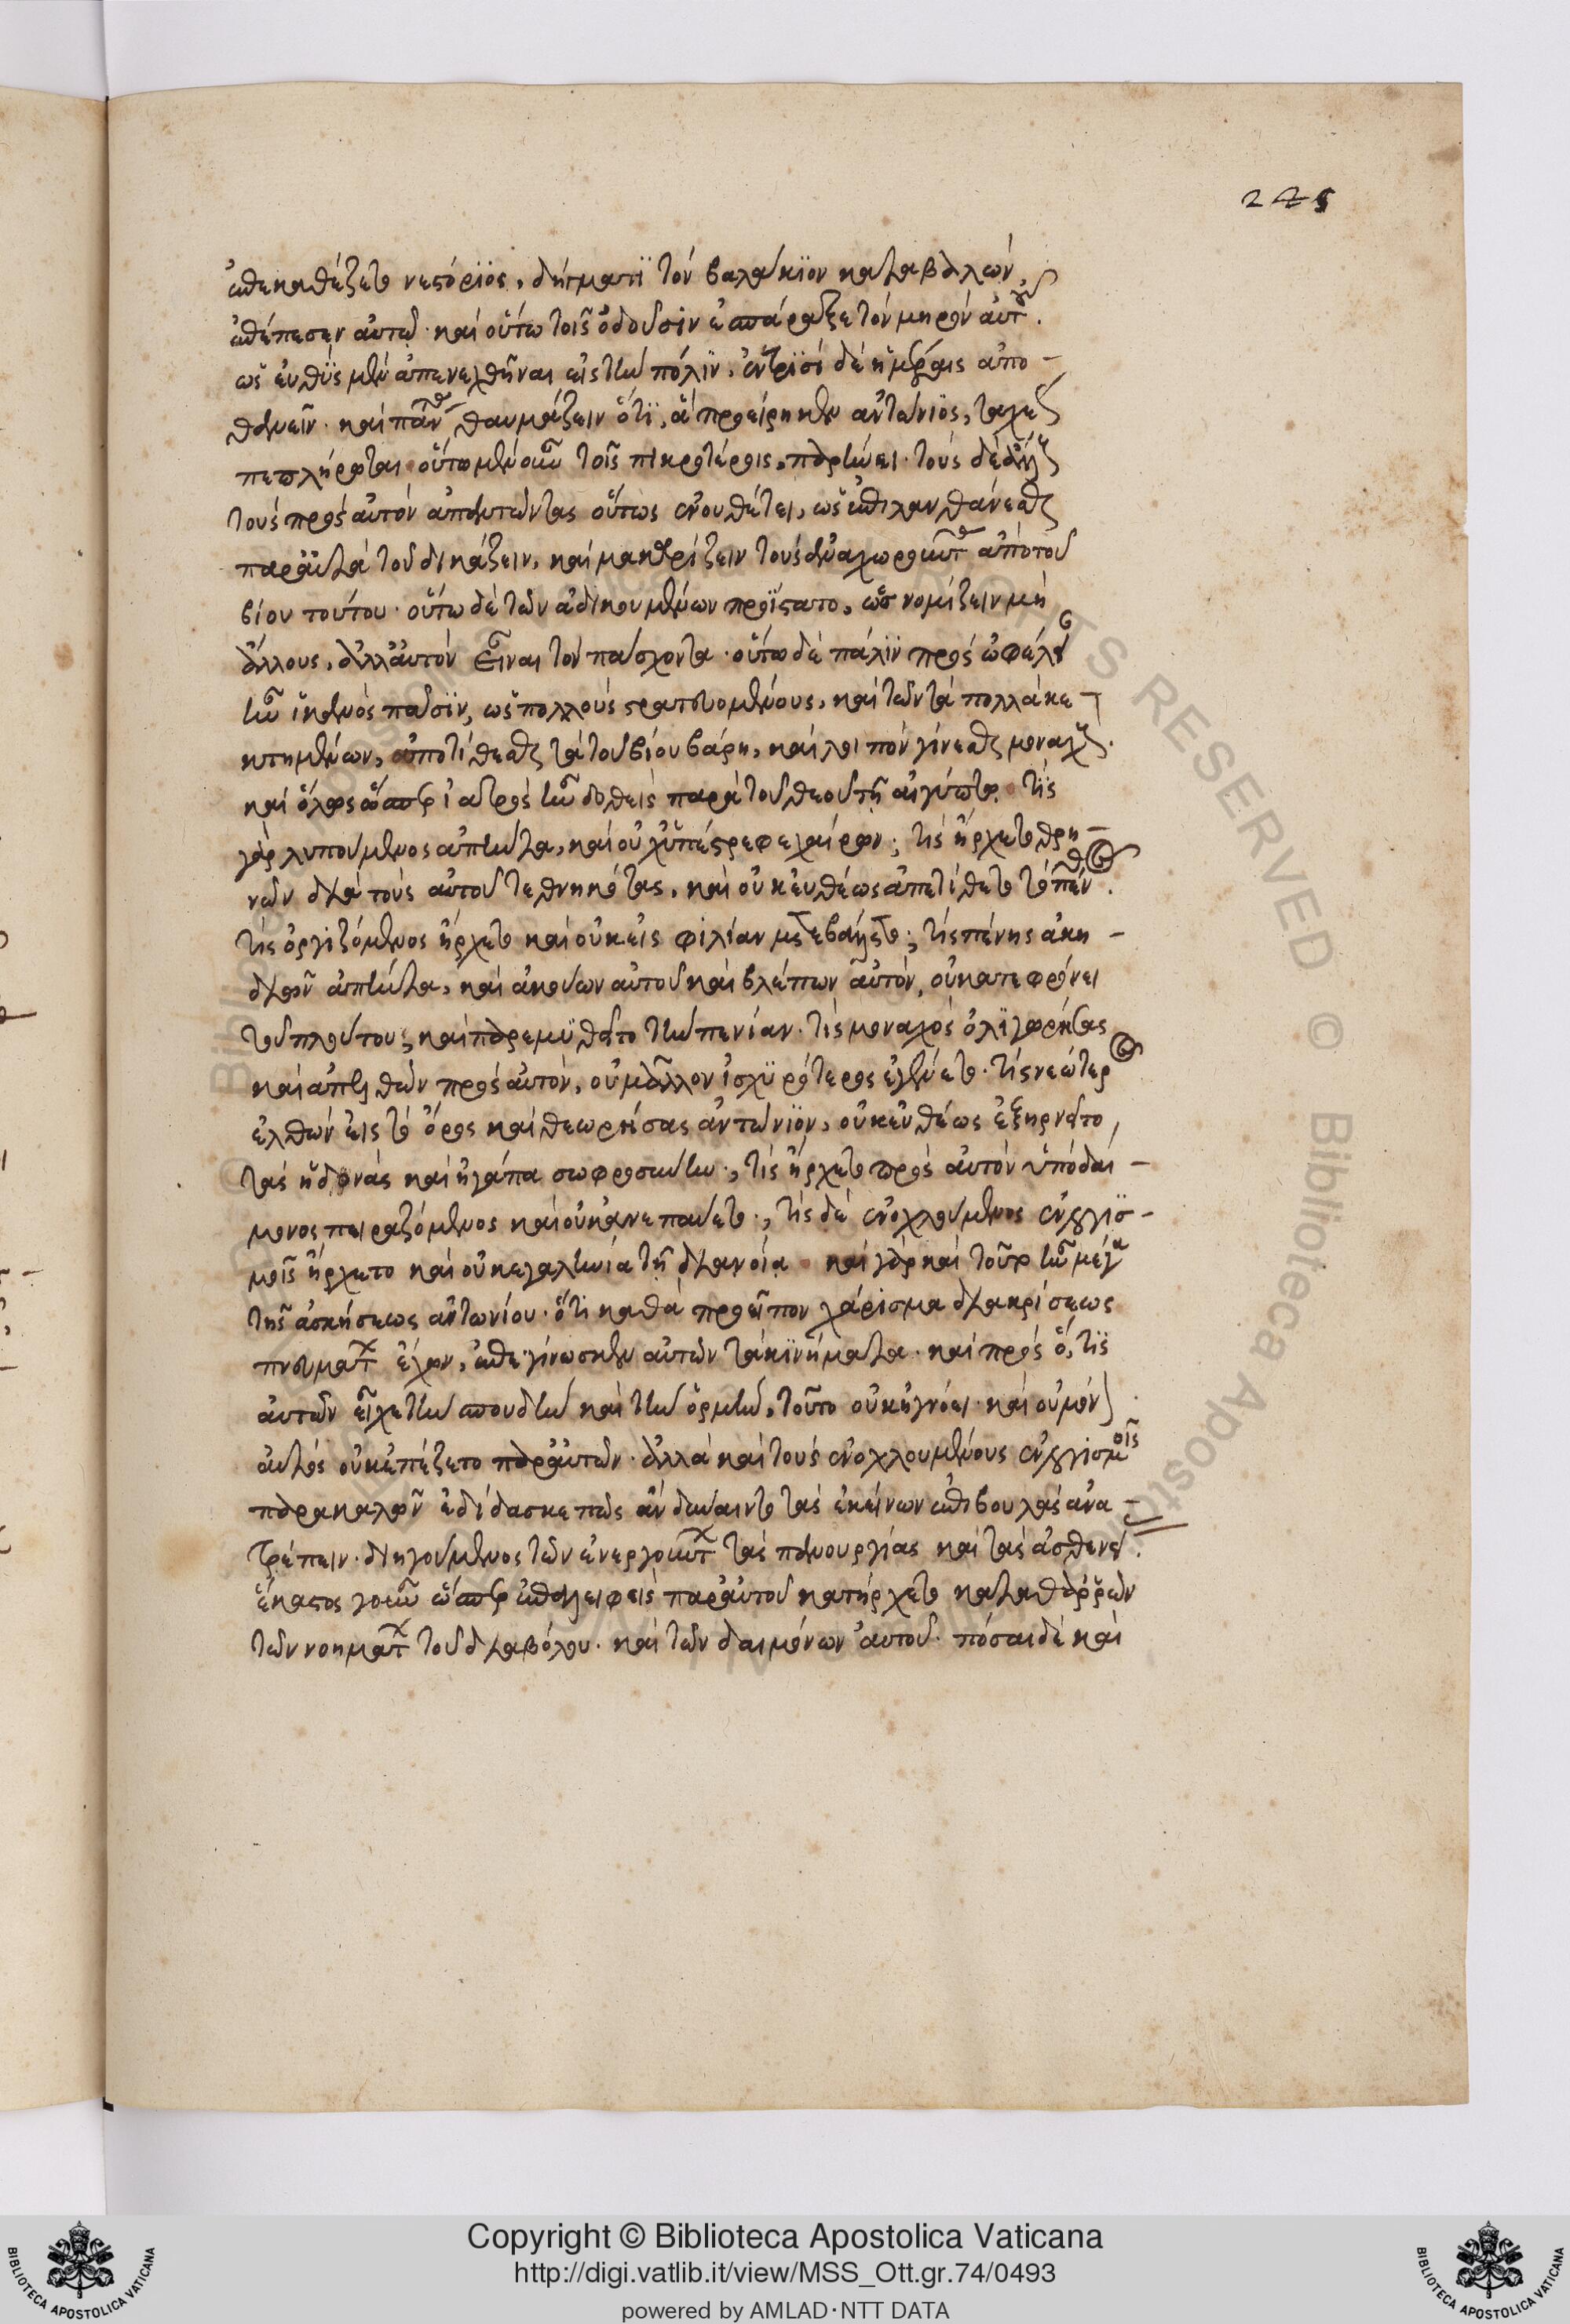 245
ἐπεκαθέζετο νεστόριος, δήγματι τὸν βαλάκιον καταβαλὼν,
ἐπέπεσεν αὐτῶ· καὶ οὕτω τοῖς ὀδοῦσιν ἐσπάραξε τὸν μηρὸν αὐτοῦ.
ὡς εὐθὺς μὲν ἀπενεχθῆναι εἰς τὴν πόλιν, ἐν τρισὶ δὲ ἡμέραις ἀπο-
θανεῖν· καὶ πάντ θαυμάζειν ὅτι, ἃ προείρηκεν ἀντώνιος, ταχέως
πεπλήρωται οὕτω μὲν οὖν τοῖς πικροτέροις, παρήνει· τοὺς δὲ ἄλλους
τοὺς πρὸς αὐτὸν ἀπαντῶντας οὕτως ἐνουθέτει, ὡς ἐπιλανθάνεσθαι
παραῦτα τοῦ δικάζειν, καὶ μακαρίζειν τοὺς ἀναχωροῦντ ἀπὸ τοῦ
βίου τούτου· οὕτω δὲ τῶν ἀδικουμένων προΐστατο, ὡς νομίζειν μὴ
ἄλλους, ἀλλ' αὐτὸν εἶναι τὸν πάσχοντα· οὕτω δὲ πάλιν πρὸς ὠφέλει
ἦν ἱκανὸς πᾶσιν, ὡς πολλοὺς στρατευομένους, καὶ τῶν τὰ πολλὰ κε-
κτημένων, ἀποτίθεσθαι τὰ τοῦ βίου βάρη, καὶ λοιπὸν γίνεσθαι μοναχούς.
καὶ ὅλως ὥσπερ ἰατρὸς ἦν δοθεὶς παρὰ τοῦ θεοῦ τῇ αἰγύπτω. τίς
γὰρ λυπούμενος ἀπήντα, καὶ οὐχ ὑπέστρεφε χαίρων; τίς ἤρχετο θρη-
νῶν διὰ τοὺς αὐτοῦ τεθνηκότας, καὶ οὐκ εὐθέως ἀπετίθετο τὸ πένθος.
τίς ὀργιζόμενος ἤρχετο καὶ οὐκ εἰς φιλίαν μετεβάλλετο; τίς πένης ἀκη-
διῶν ἀπήντα, καὶ ἀκούων αὐτοῦ καὶ βλέπων αὐτὸν, οὐ κατεφρόνει
τοῦ πλούτου; καὶ παρεμυθεῖτο τὴν πενίαν· τίς μοναχὸς ὀλιγωρήσας
καὶ ἀπελθὼν πρὸς αὐτὸν, οὐ μᾶλλον ἰσχυρότερος ἐγένετο· τίς νεώτερος
ἐλθὼν εἰς τὸ ὄρος καὶ θεωρήσας ἀντώνιον, οὐκ εὐθέως ἐξηρνεῖτο
τὰς ἡδονὰς καὶ ἠγάπα σωφροσύνην·, τίς ἤρχετο πρὸς αὐτὸν ὑπὸ δαί-
μονος πειραζόμενος καὶ οὐκ ἀνεπαύετο·, τίς δὲ ἐνοχλούμενος ἐν λογισ-
μοῖς ἤρχετο καὶ οὐκ ἐγαληνία τῇ διανοία καὶ γὰρ καὶ τοῦτο ἦν μέγα
τῆς ἀσκήσεως ἀντωνίου· ὅτι καθὰ προεῖπον χάρισμα διακρίσεως
πνευμάτ ἔχων, ἐπεγίνωσκεν αὐτῶν τὰ κινήματα· καὶ πρὸς ὅ, τις
αὐτῶν εἶχε τὴν σπουδὴν καὶ τὴν ὁρμὴν, τοῦτο οὐκ ἠγνόει· καὶ οὐ μόνον
αὐτὸς οὐκ ἐπέζετο παρ' αὐτῶν· ἀλλὰ καὶ τοὺς ἐνοχλουμένους ἐν λογισμοῖς
παρακαλῶν ἐδίδασκε πῶς ἂν δύναιντο τὰς ἐκείνων ἐπιβουλὰς ἀνα-
τρέπειν· διηγούμενος τῶν ἐνεργούντ τὰς πανουργίας καὶ τὰς ἀσθενεί.
ἕκαστος γοῦν ὥσπερ ἐπαλειφεὶς παρ' αὐτοῦ κατήρχετο καταθαρρῶν
τῶν νοημάτ τοῦ διαβόλου· καὶ τῶν δαιμόνων αὐτοῦ· πόσαι δὲ καὶ
© Biblioteca Apostolica
Copyright © Biblioteca Apostolica Vaticana
http://digi.vatlib.it/view/MSS_Ott.gr.74/0493
powered by AMLAD·NTT DATA
BIBLIOTECA APOSTOLICA VATICANA
BIBLIOTECA APOSTOLICA VATICANA